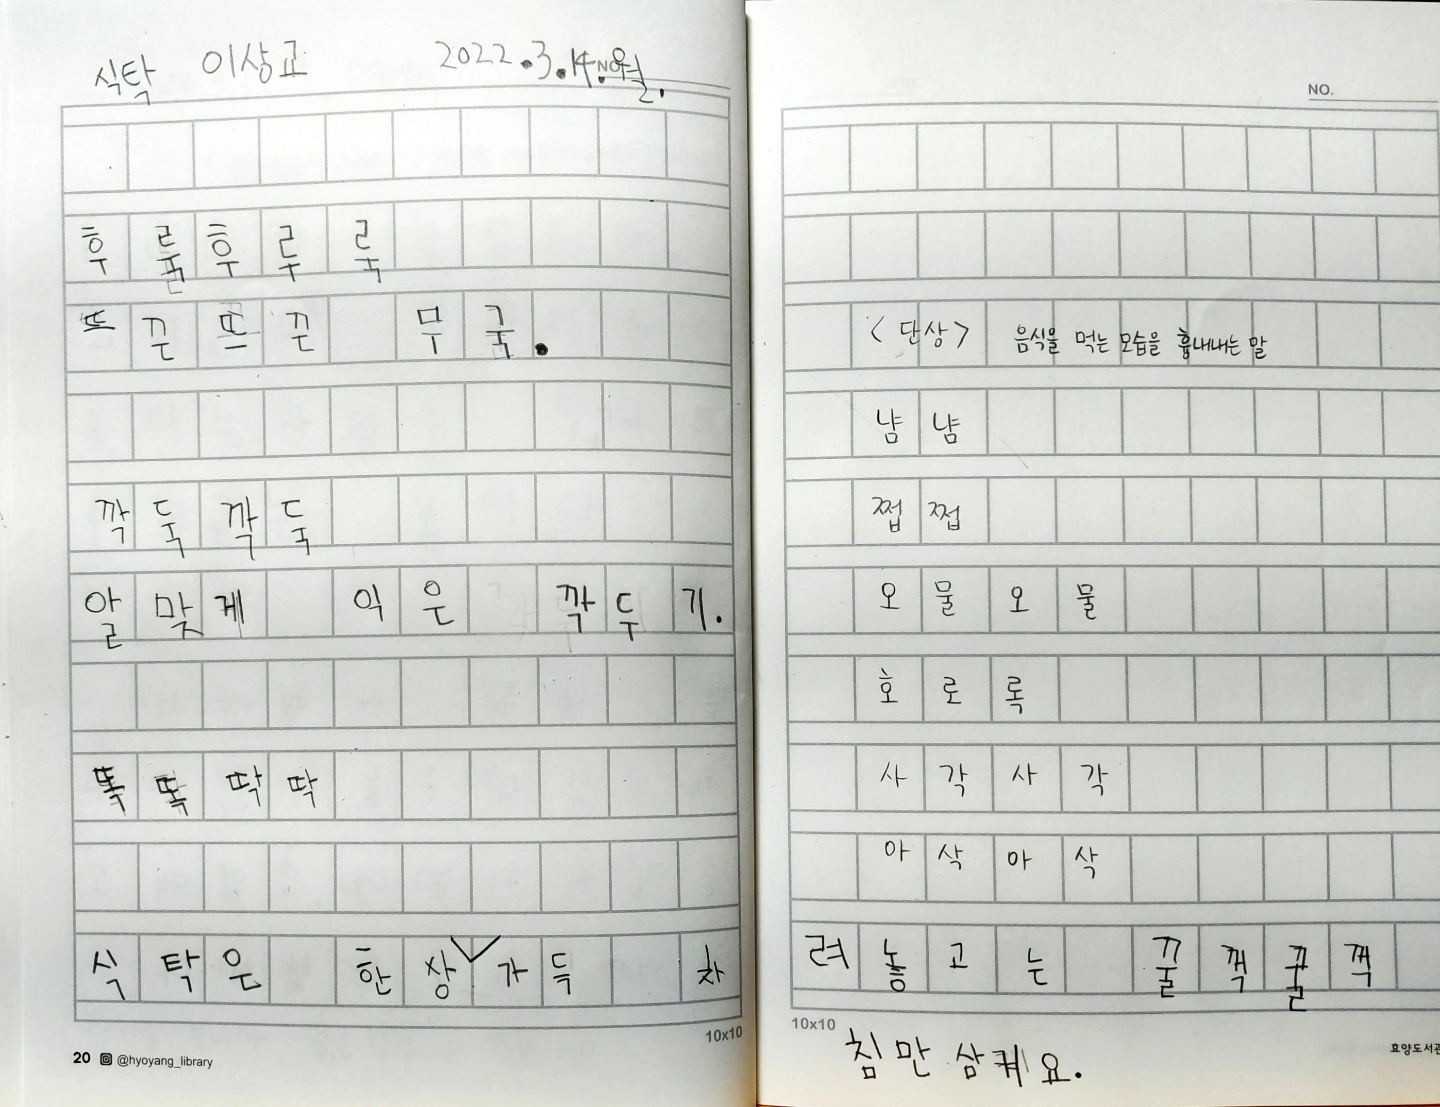 식탁 이상교 2022.3.14.월.
NO.
후룰후루룩
뜨끈뜨끈 무국.
깍둑깍둑
알맞게 익은 깍두기.
똑똑딱딱
식탁은 한상가득 차
10x10
20 @hyoyang_library
NO.
<단상> 음식을 먹는 모습을 흉내내는 말
냠냠
쩝쩝
오물오물
호로록
사각사각
아삭아삭
려놓고는 꿀꺽꿀꺽
10x10
침만 삼켜요.
효양도서관